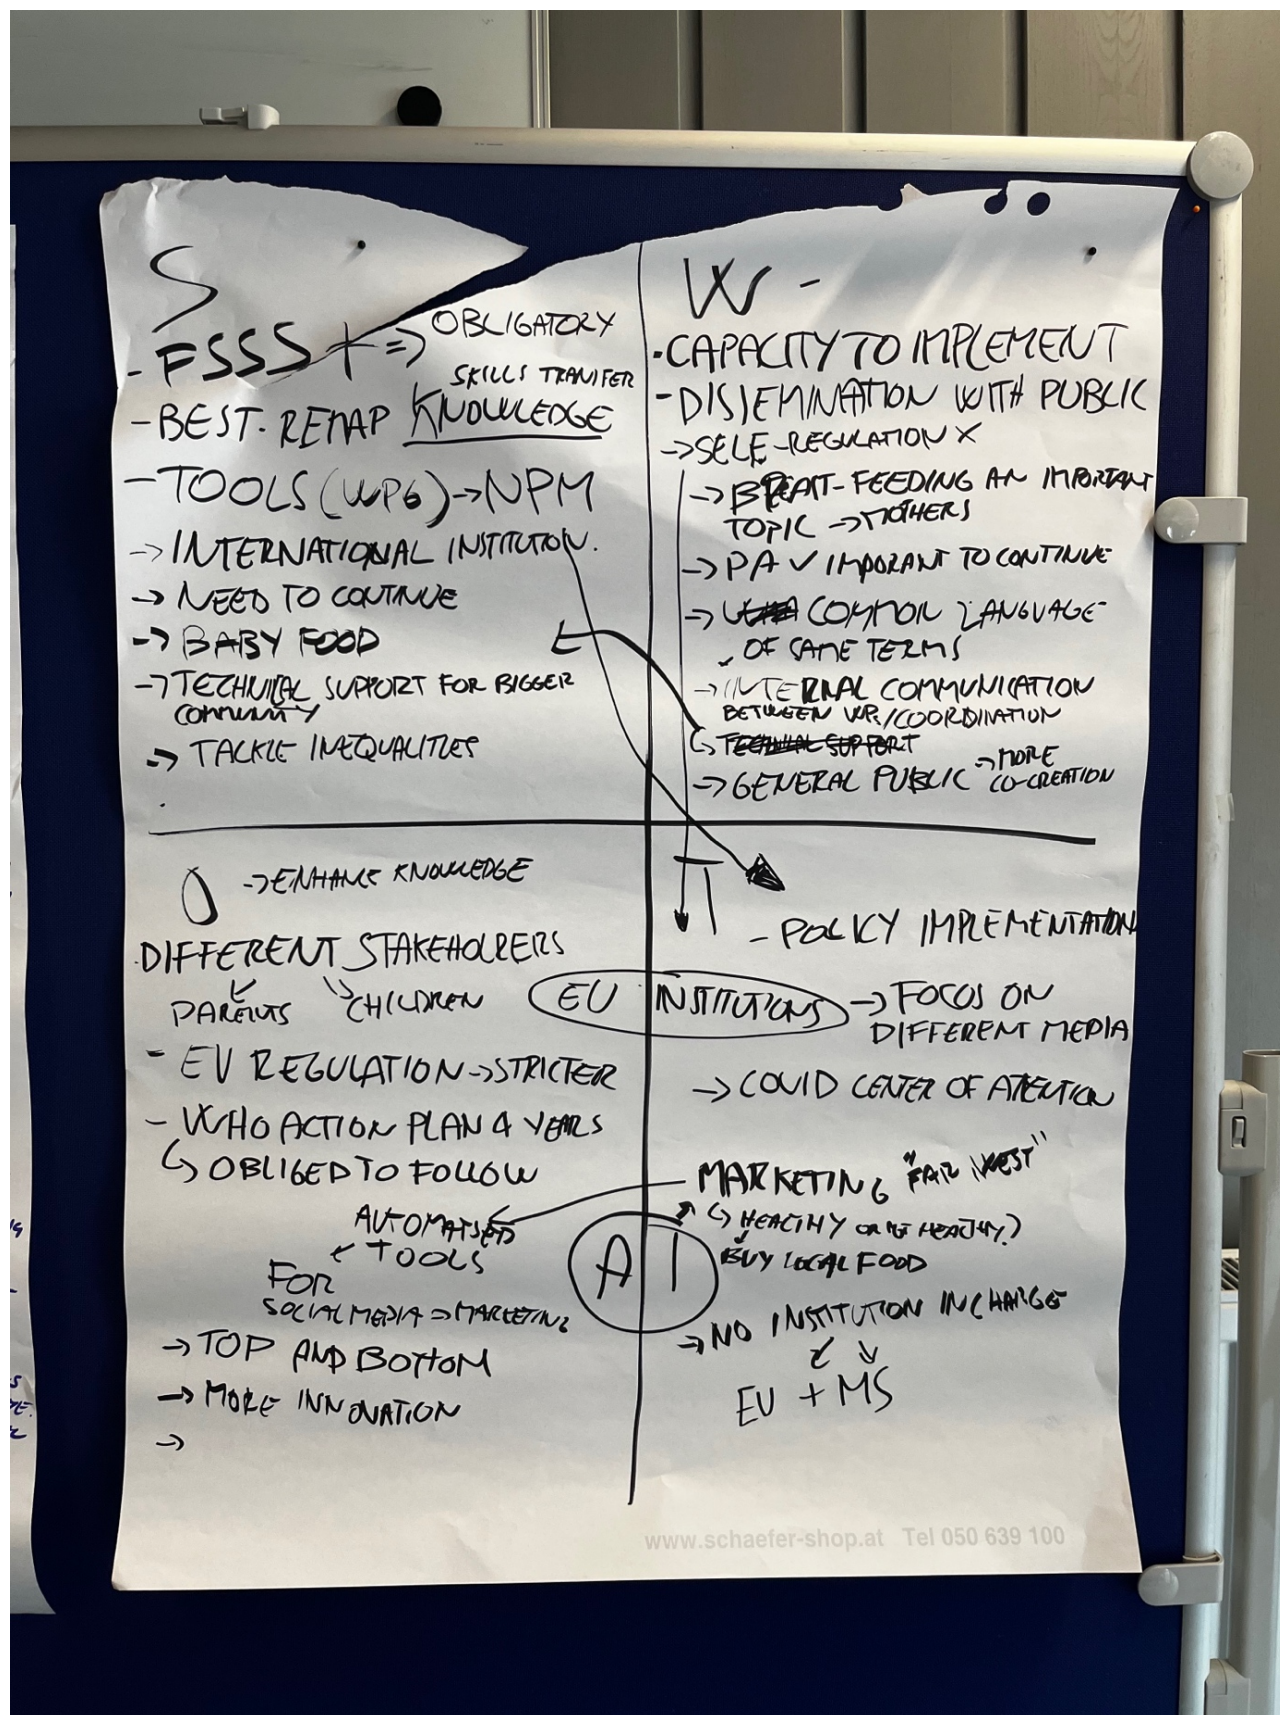 S
- FSSS + => OBLIGATORY
SKILLS TRANSFER
- BEST-REMAP KNOWLEDGE
- TOOLS (WP6) -> NPM
-> INTERNATIONAL INSTITUTION.
-> NEED TO CONTINUE
-> BABY FOOD
-> TECHNICAL SUPPORT FOR BIGGER
COMMUNITY
-> TACKLE INEQUALITIES
W -
• CAPACITY TO IMPLEMENT
- DISSEMINATION WITH PUBLIC
-> SELF-REGULATION X
-> BREAST-FEEDING AN IMPORTANT
TOPIC -> MOTHERS
-> PA V IMPORANT TO CONTINUE
-> COMMON LANGUAGE
OF SAME TERMS
-> INTERNAL COMMUNICATION
BETWEEN WPs/COORDINATION
TECHNICAL SUPPORT
-> GENERAL PUBLIC -> MORE
CO-CREATION
O -> ENHANCE KNOWLEDGE
DIFFERENT STAKEHOLRERS
PARENTS CHILDREN
- EU REGULATION -> STRICTER
- WHO ACTION PLAN 4 YEARS
OBLIGED TO FOLLOW
AUTOMATSED
TOOLS
FOR
SOCIAL MEDIA => MARKETING
-> TOP AND BOTTOM
-> MORE INNOVATION
->
T
- POLICY IMPLEMENTATION
EU INSTITUTIONS -> FOCUS ON
DIFFERENT MEDIA
-> COVID CENTER OF ATENTION
MARKETING "FAIR WEST"
HEALTHY OR NOT HEALTHY?
BUY LOCAL FOOD
AI
-> NO INSTITUTION IN CHARGE
EU + MS
www.schaefer-shop.at Tel 050 639 100